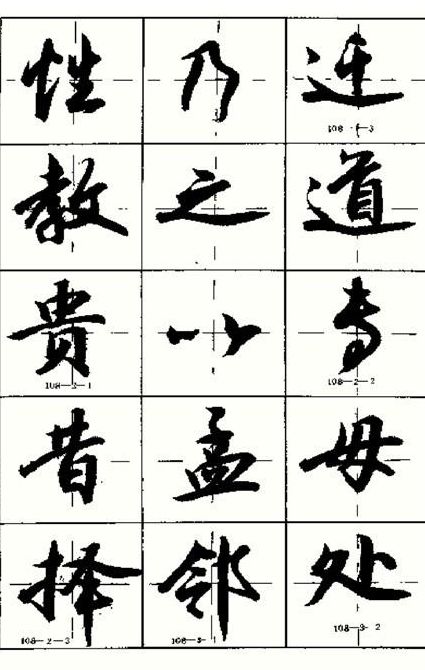 性乃迁
108-1-3
教之道
贵以专
108—2—1 108—2—2
昔孟母
择邻处
108—2—3 108—3—1 108—3—2